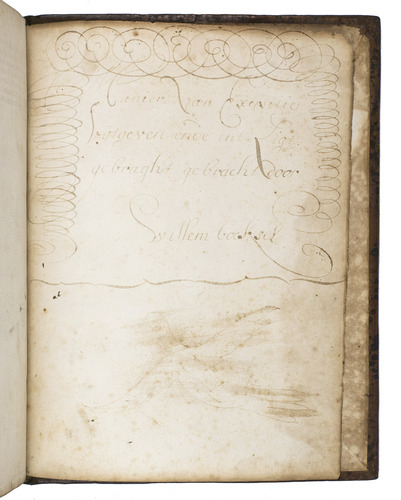 Manier van Exercitie
uÿtgeven ende int
gebraght gebracht door
Willem